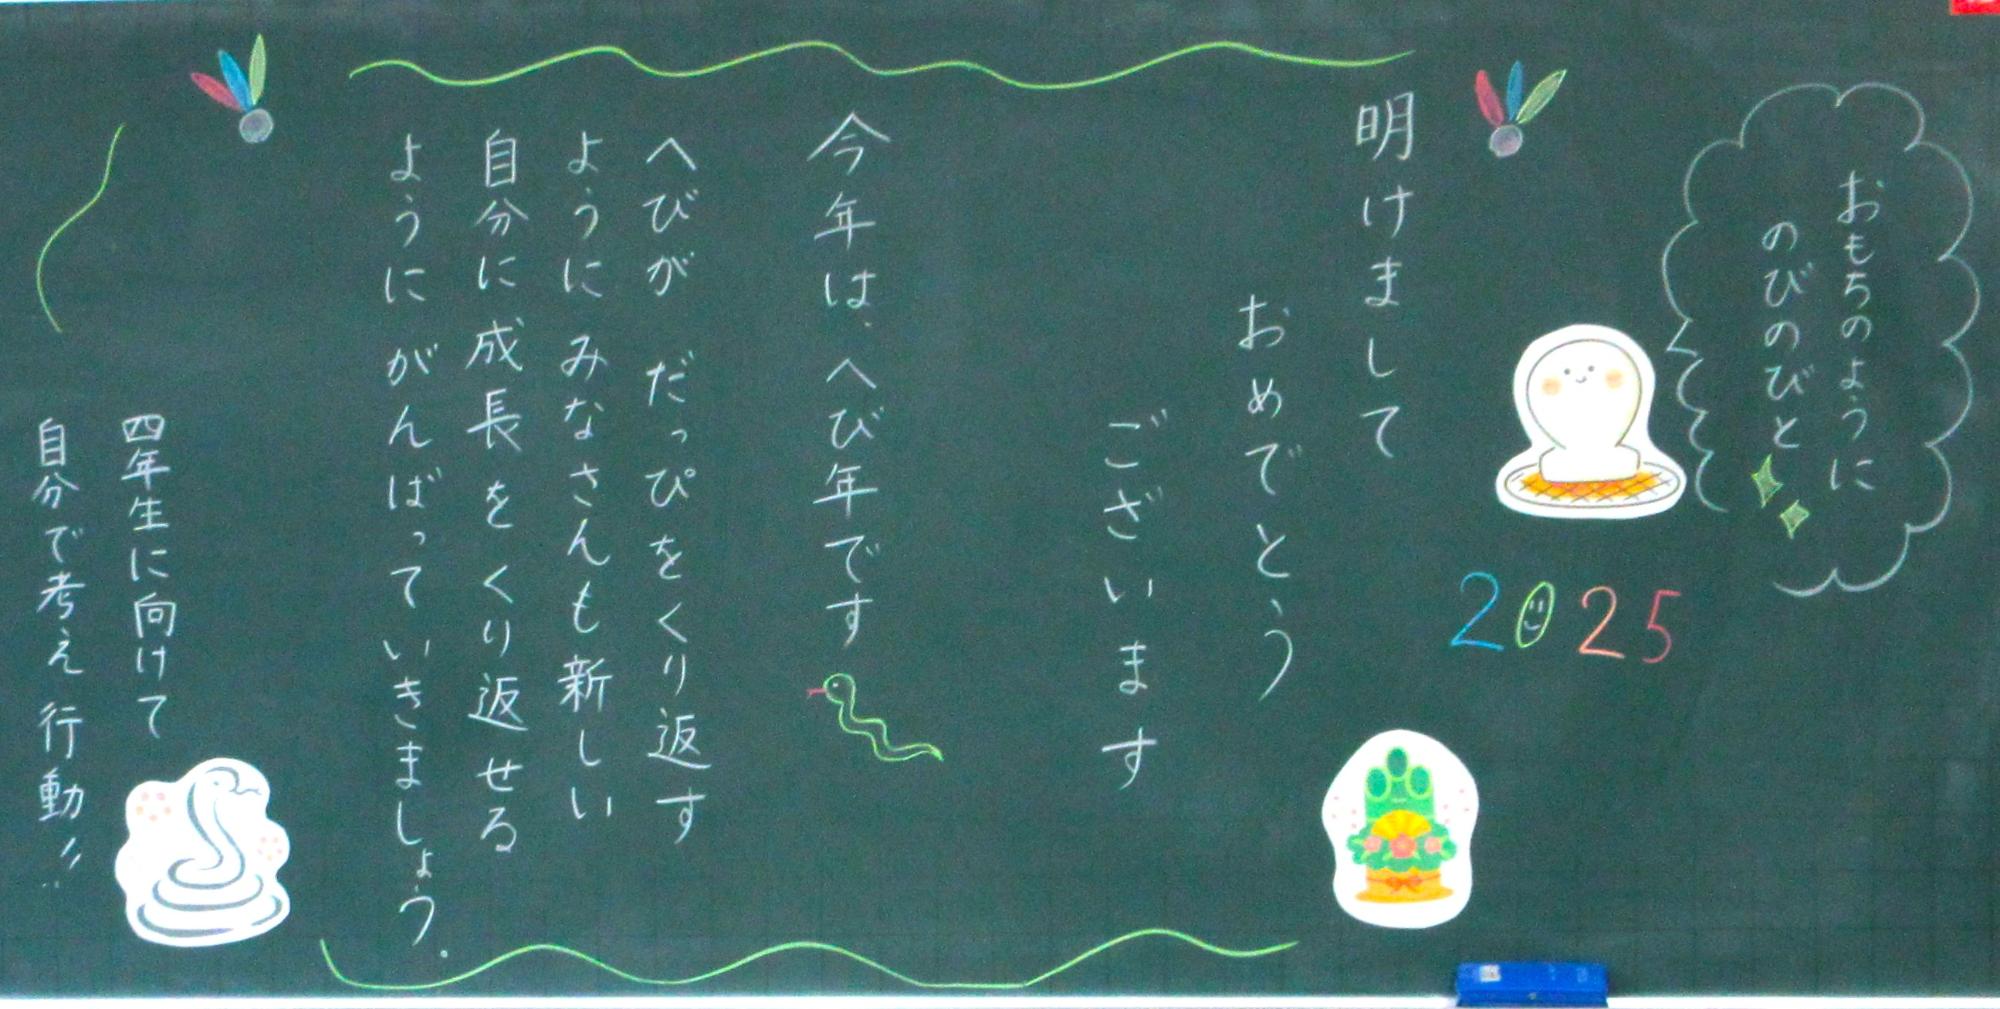 おもちのように
のびのびと
2025
明けまして
おめでとう
ございます
今年は、へび年です
へびが だっぴをくり返す
ように みなさんも新しい
自分に成長をくり返せる
ように がんばっていきましょう。
四年生に向けて
自分で考え行動!!